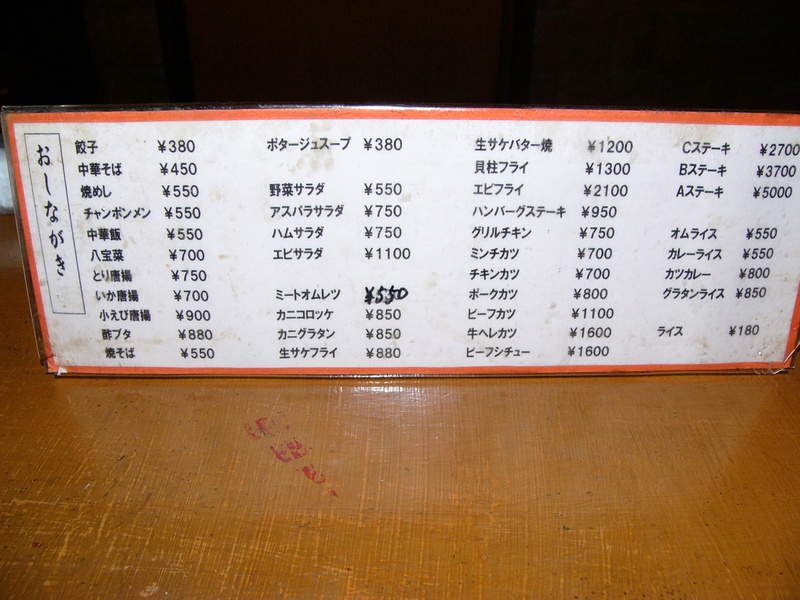 おしながき
餃子 ¥380
中華そば ¥450
焼めし ¥550
チャンポンメン ¥550
中華飯 ¥550
八宝菜 ¥700
とり唐揚 ¥750
いか唐揚 ¥700
小えび唐揚 ¥900
酢ブタ ¥880
焼そば ¥550
ポタージュスープ ¥380
野菜サラダ ¥550
アスパラサラダ ¥750
ハムサラダ ¥750
エビサラダ ¥1100
ミートオムレツ ¥550
カニコロッケ ¥850
カニグラタン ¥850
生サケフライ ¥880
生サケバター焼 ¥1200
貝柱フライ ¥1300
エビフライ ¥2100
ハンバーグステーキ ¥950
グリルチキン ¥750
ミンチカツ ¥700
チキンカツ ¥700
ポークカツ ¥800
ビーフカツ ¥1100
牛ヘレカツ ¥1600
ビーフシチュー ¥1600
Cステーキ ¥2700
Bステーキ ¥3700
Aステーキ ¥5000
オムライス ¥550
カレーライス ¥550
カツカレー ¥800
グラタンライス ¥850
ライス ¥180